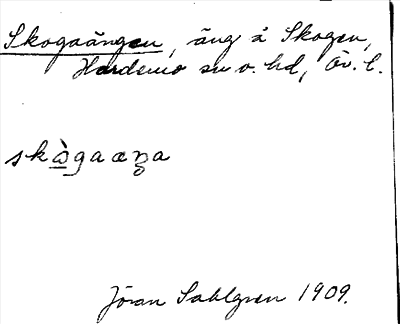 Skogaängen, äng å Skogen,
Hardemo sn o. hd, Ör. l.
skò̲gaæŋa
Jöran Sahlgren 1909.